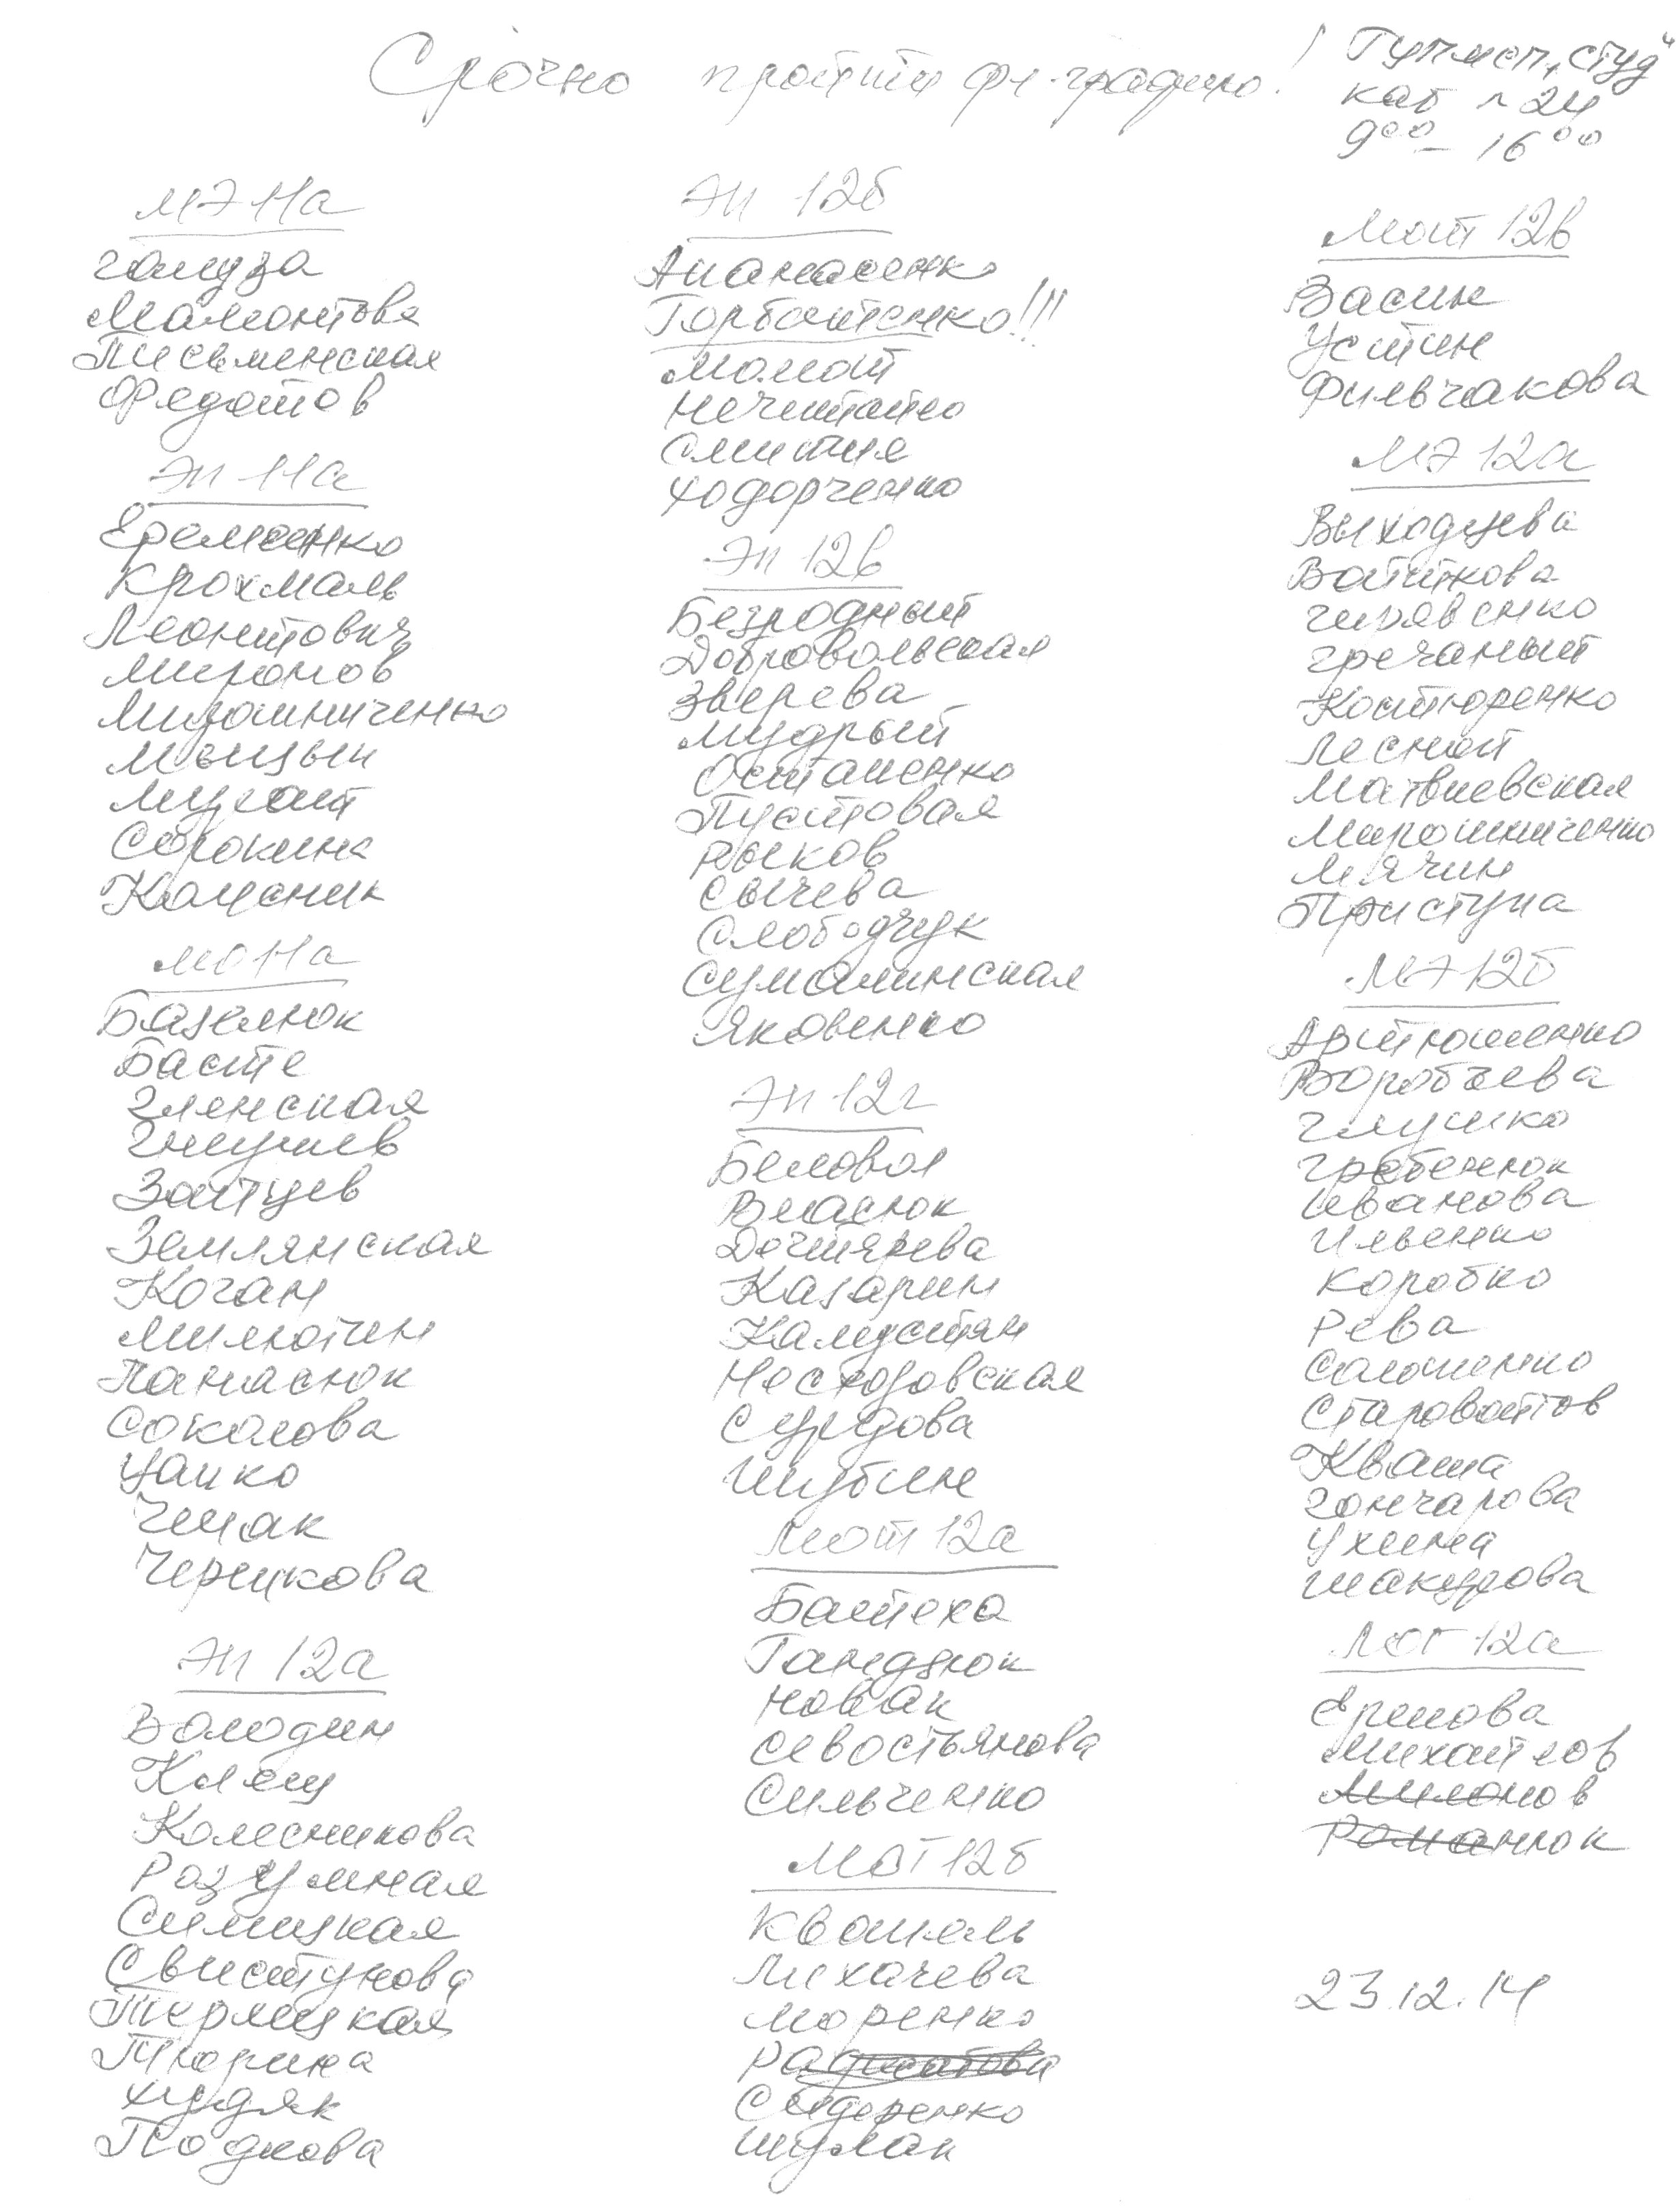 Срочно пройти фл-графию!
каб 24
9⁰⁰ – 16⁰⁰
МЭ 11а
Галуза
Мамонтова
Письменская
Федотов
ЭП 11а
Еременко
Крохмаль
Леонтович
Миронов
Мирошниченко
Мурат
Сорокина
МО 11а
Базелюк
Басте
Гленская
Зайцев
Землянская
Коган
Милютин
Панасюк
Соколова
Цапко
Чепикова
ЭП 12а
Володин
Клещ
Колесникова
Разумная
Свистунова
Терлецкая
Тюрина
Худяк
Подкова
ЭП 12б
Апанасенко
Горбатенко!!!
Мамат
Нечитайло
Ходорченко
ЭП 12в
Безродный
Добровольская
Зверева
Мудрый
Остапенко
Пустовая
Рыков
Сычева
Слободчук
Сумалинская
Яковенко
ЭП 12г
Беловол
Власюк
Дегтярева
Казарин
Калустян
Нестеровская
Сурдова
Шубин
МОТ 12а
Батеха
Гандзюк
Новак
Севостьянова
Сильченко
МОТ 12б
Квашаль
Лихачева
Моренко
Сидоренко
Шулак
МОТ 12в
Васин
Устин
Фильчакова
МЭ 12а
Выходцева
Войткова
Гиравенко
Гречаный
Костюренко
Лесной
Матвиевская
Мирошниченко
Мячин
Приступа
МЭ 12б
Артюшенко
Воробьева
Глушко
Гребенюк
Иванова
Ильенко
Коробко
Рева
Салошенко
Старовойтов
Кваша
Гончарова
Ухина
Шакурова
МОГ 12а
Ершова
Михайлов
Милонов
Романюк
23.12.14